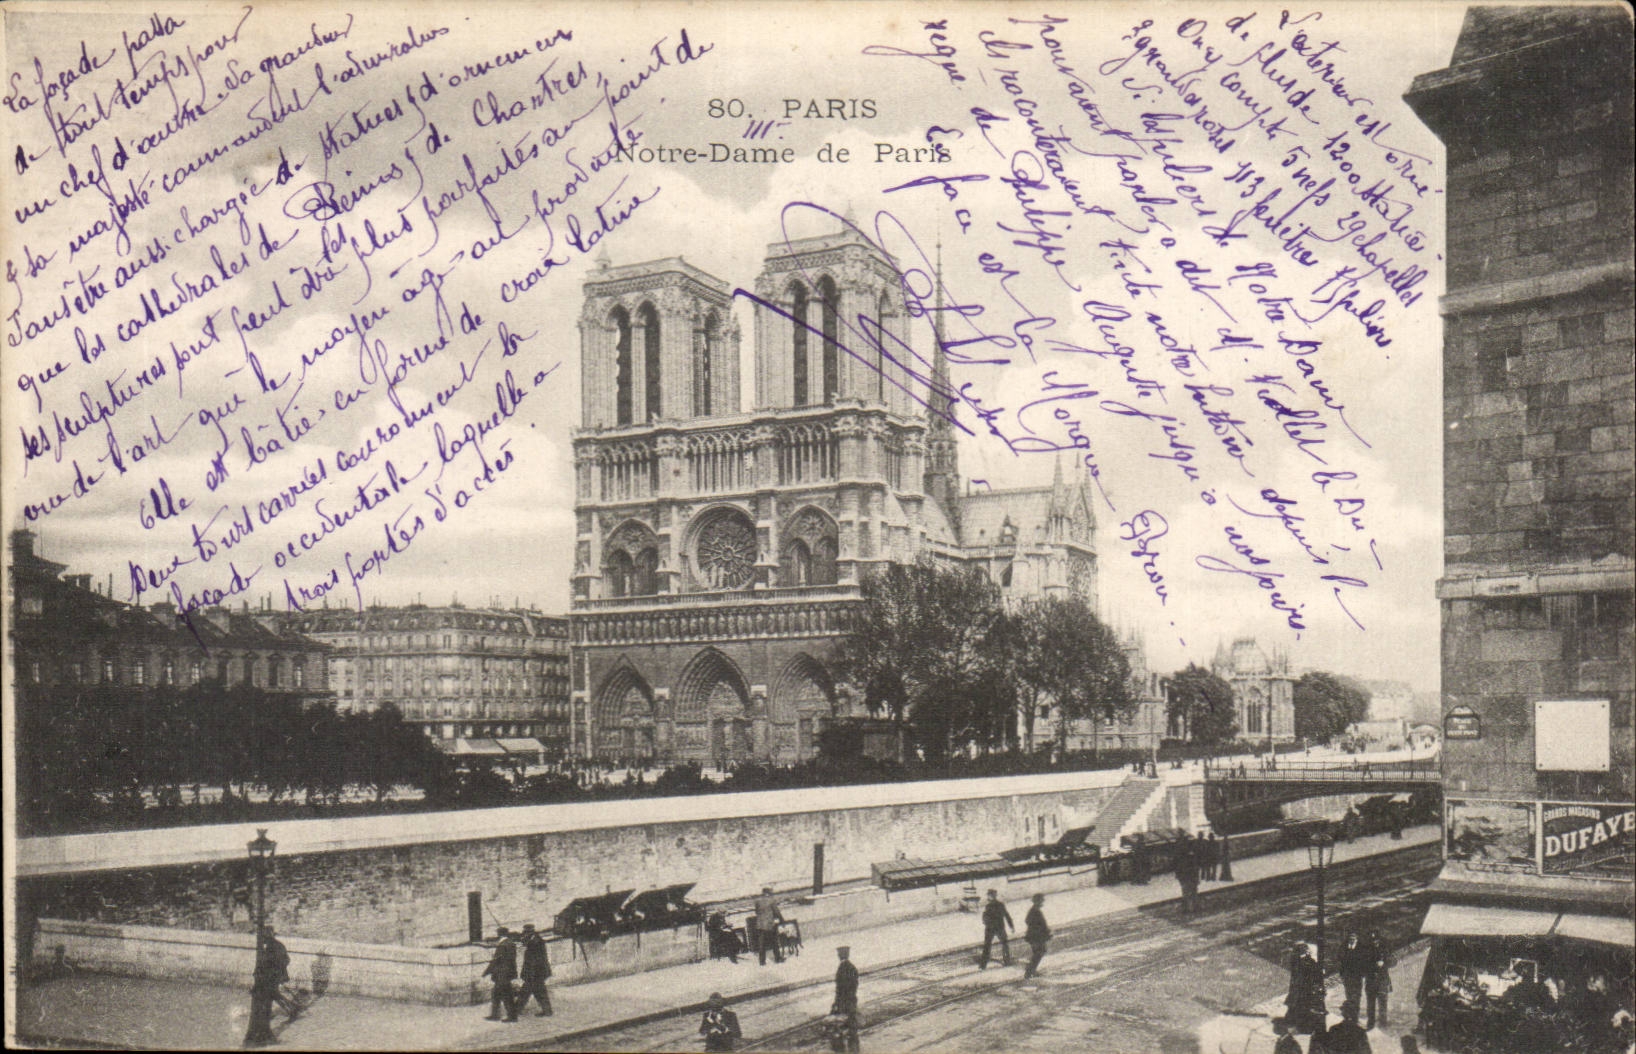 La façade passa
de tout temps pour
un chef d'œuvre. Sa grandeur
& sa majesté commandent l'admiration
Sans être aussi chargée de statues & d'ornements
que les cathédrales de Reims & de Chartres,
ses sculptures sont peut être les plus parfaites au point de
vue de l'art que le moyen âge ait produite.
Elle est bâtie en forme de croix latine
Deux tours carrées couronnent la
façade occidentale laquelle a
trois portes d'accès.
80. PARIS
III
Notre-Dame de Paris
L'extérieur est orné
de plus de 1200 statues.
On y compte 5 nefs 29 chapelles
3 grandes roses 113 fenêtres & 75 piliers.
Si les piliers de Notre Dame
pouvaient parler a dit M. Viollet le Duc
ils raconteraient toute notre histoire depuis le
règne de Philippe Auguste jusqu'à nos jours.
En face est la Morgue
GRANDS MAGASINS
DUFAYE